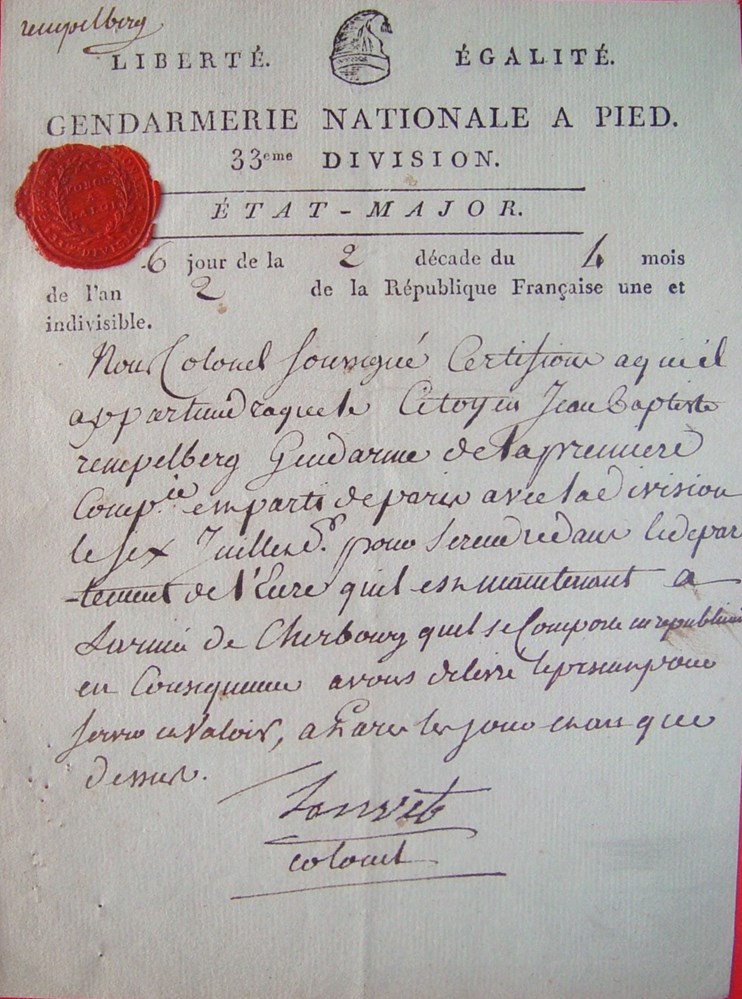 rempelberg
LIBERTÉ. ÉGALITÉ.
GENDARMERIE NATIONALE A PIED.
33eme DIVISION.
ÉTAT-MAJOR.
6 jour de la 2 décade du 4 mois
de l'an 2 de la République Française une et
indivisible.
Nous Colonel Soussigné Certifions a qu'il
appartiendra que le Citoyen Jean Baptiste
rempelberg Gendarme de la premiere
Compie est parti de paris avec la division
le six Juillet dr pour se rendre dans le depar
-tement de l'Eure quil est maintenant a
Larmée de Cherbourg quil se Comporte en republicain
en Consequence avons delivré le present pour
servir et valoir, a les jour et an que
dessus.
colonel